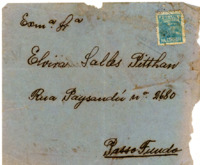 Exmª Srª
Elvira Salles Pitthan
Rua Paysandú nº 2480
Passo Fundo